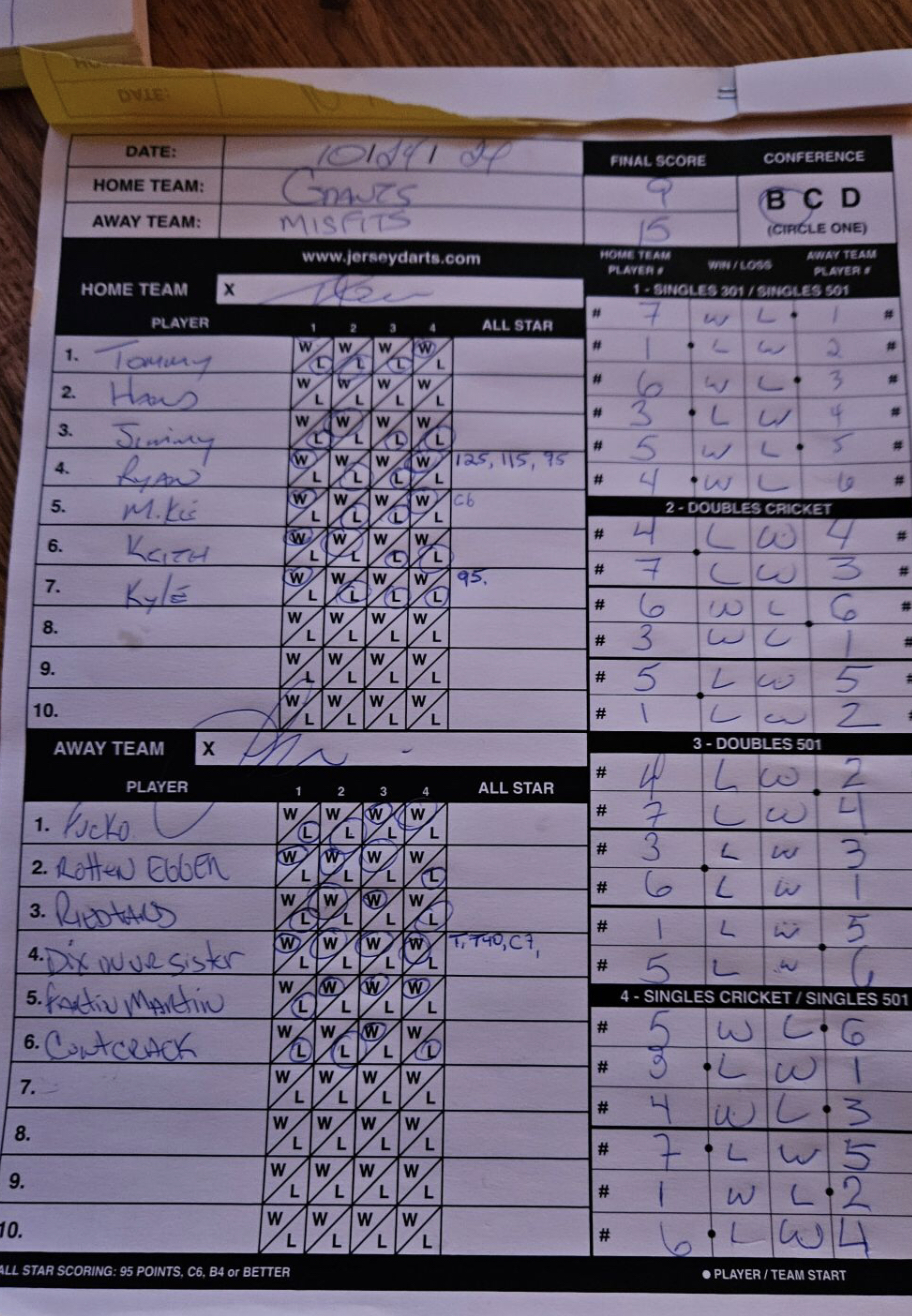 DATE:
DATE: 10/24/24 FINAL SCORE CONFERENCE
HOME TEAM: GRANTS 9 B C D
AWAY TEAM: MISFITS 15 (CIRCLE ONE)
www.jerseydarts.com HOME TEAM PLAYER # WIN / LOSS AWAY TEAM PLAYER #
HOME TEAM X
PLAYER 1 2 3 4 ALL STAR
1. Tommy W L W L W L W L
2. HANS W L W L W L W L
3. Jimmy W L W L W L W L
4. RYAN W L W L W L W L 125, 115, 95
5. M.Kie W L W L W L W L C6
6. KEITH W L W L W L W L
7. Kyle W L W L W L W L 95.
8. W L W L W L W L
9. W L W L W L W L
10. W L W L W L W L
AWAY TEAM X
PLAYER 1 2 3 4 ALL STAR
1. PUCKO W L W L W L W L
2. ROTTEN EGGER W L W L W L W L
3. W L W L W L W L
4. DIX IN UR SISTER W L W L W L W L T, T40, C7,
5. FARTIN MARTIN W L W L W L W L
6. CONTCRACK W L W L W L W L
7. W L W L W L W L
8. W L W L W L W L
9. W L W L W L W L
10. W L W L W L W L
ALL STAR SCORING: 95 POINTS, C6, B4 or BETTER
1 - SINGLES 301 / SINGLES 501
# 7 W L • 1 #
# 1 • L W 2 #
# 6 W L • 3 #
# 3 • L W 4 #
# 5 W L • 5 #
# 4 • W L 6 #
2 - DOUBLES CRICKET
# 4 L W 4 #
# 7 L W 3 #
# 6 W L 6 #
# 3 W L 1 #
# 5 L W 5 #
# 1 L W 2 #
3 - DOUBLES 501
# 4 L W 2
# 7 L W 4
# 3 L W 3
# 6 L W 1
# 1 L W 5
# 5 L W 6
4 - SINGLES CRICKET / SINGLES 501
# 5 W L • 6
# 3 • L W 1
# 4 W L • 3
# 7 • L W 5
# 1 W L • 2
# 6 • L W 4
• PLAYER / TEAM START